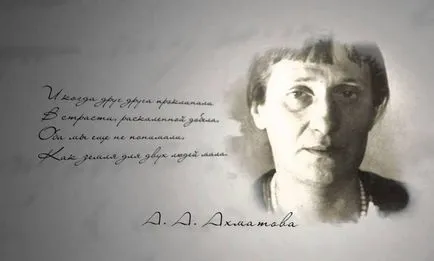 И когда друг друга проклинали
В страсти, раскаленной добела,
Оба мы еще не понимали,
Как земля для двух людей мала.
А. А. Ахматова